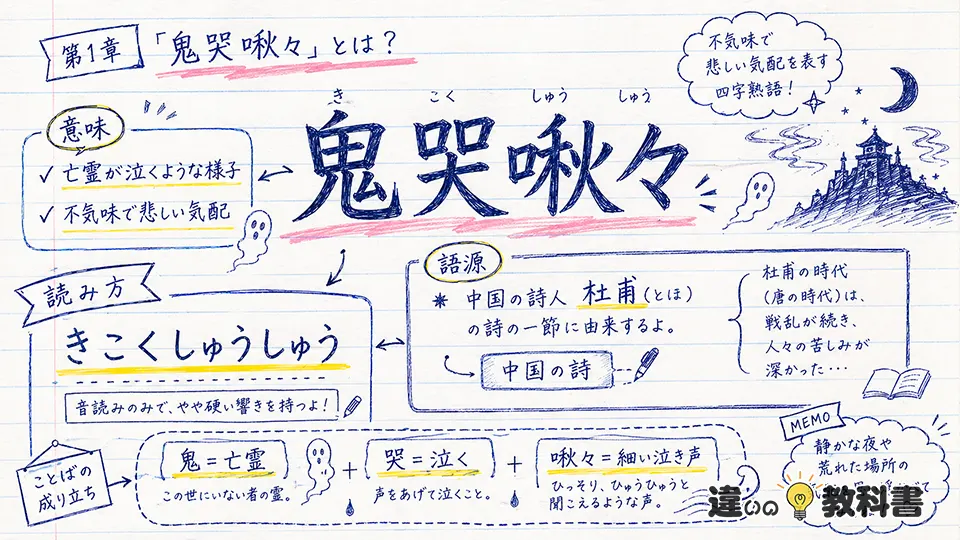 第1章
「鬼哭啾々」とは?
不気味で
悲しい気配を表す
四字熟語!
意味
✓ 亡霊が泣くような様子
✓ 不気味で悲しい気配
き こく しゅう しゅう
鬼哭啾々
読み方
きこくしゅうしゅう
音読みのみで、やや硬い響きを持つよ!
語源
* 中国の詩人 杜甫(とほ)
の詩の一節に由来するよ。
中国の詩
杜甫の時代
(唐の時代)は、
戦乱が続き、
人々の苦しみが
深かった…
ことばの
成り立ち
鬼=亡霊
この世にいない者の霊。
+
哭=泣く
声をあげて泣くこと。
+
啾々=細い泣き声
ひっそり、ひゅうひゅうと
聞こえるような声。
MEMO
静かな夜や
荒れた場所の
違いの教科書